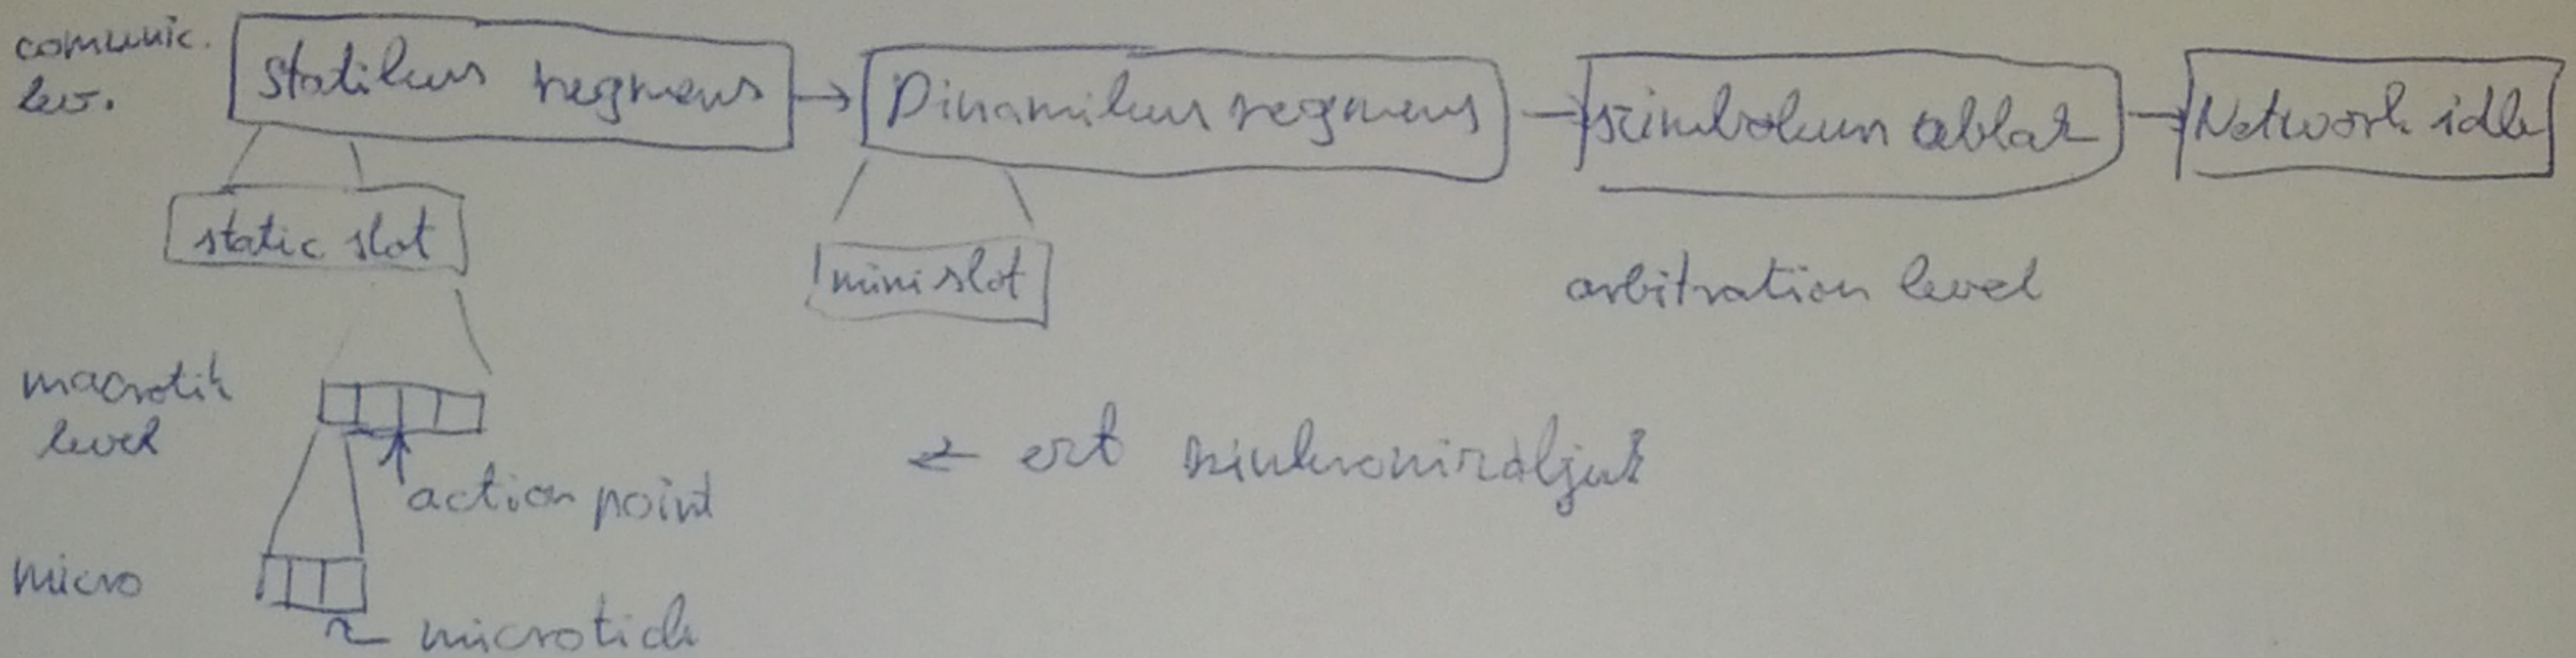 comunic.
lev.
statikus szegmens
Dinamikus szegmens
szimbolum ablak
Network idle
static slot
minislot
arbitration level
macrotik
level
action point
← ezt szinkronizáljuk
micro
microtick